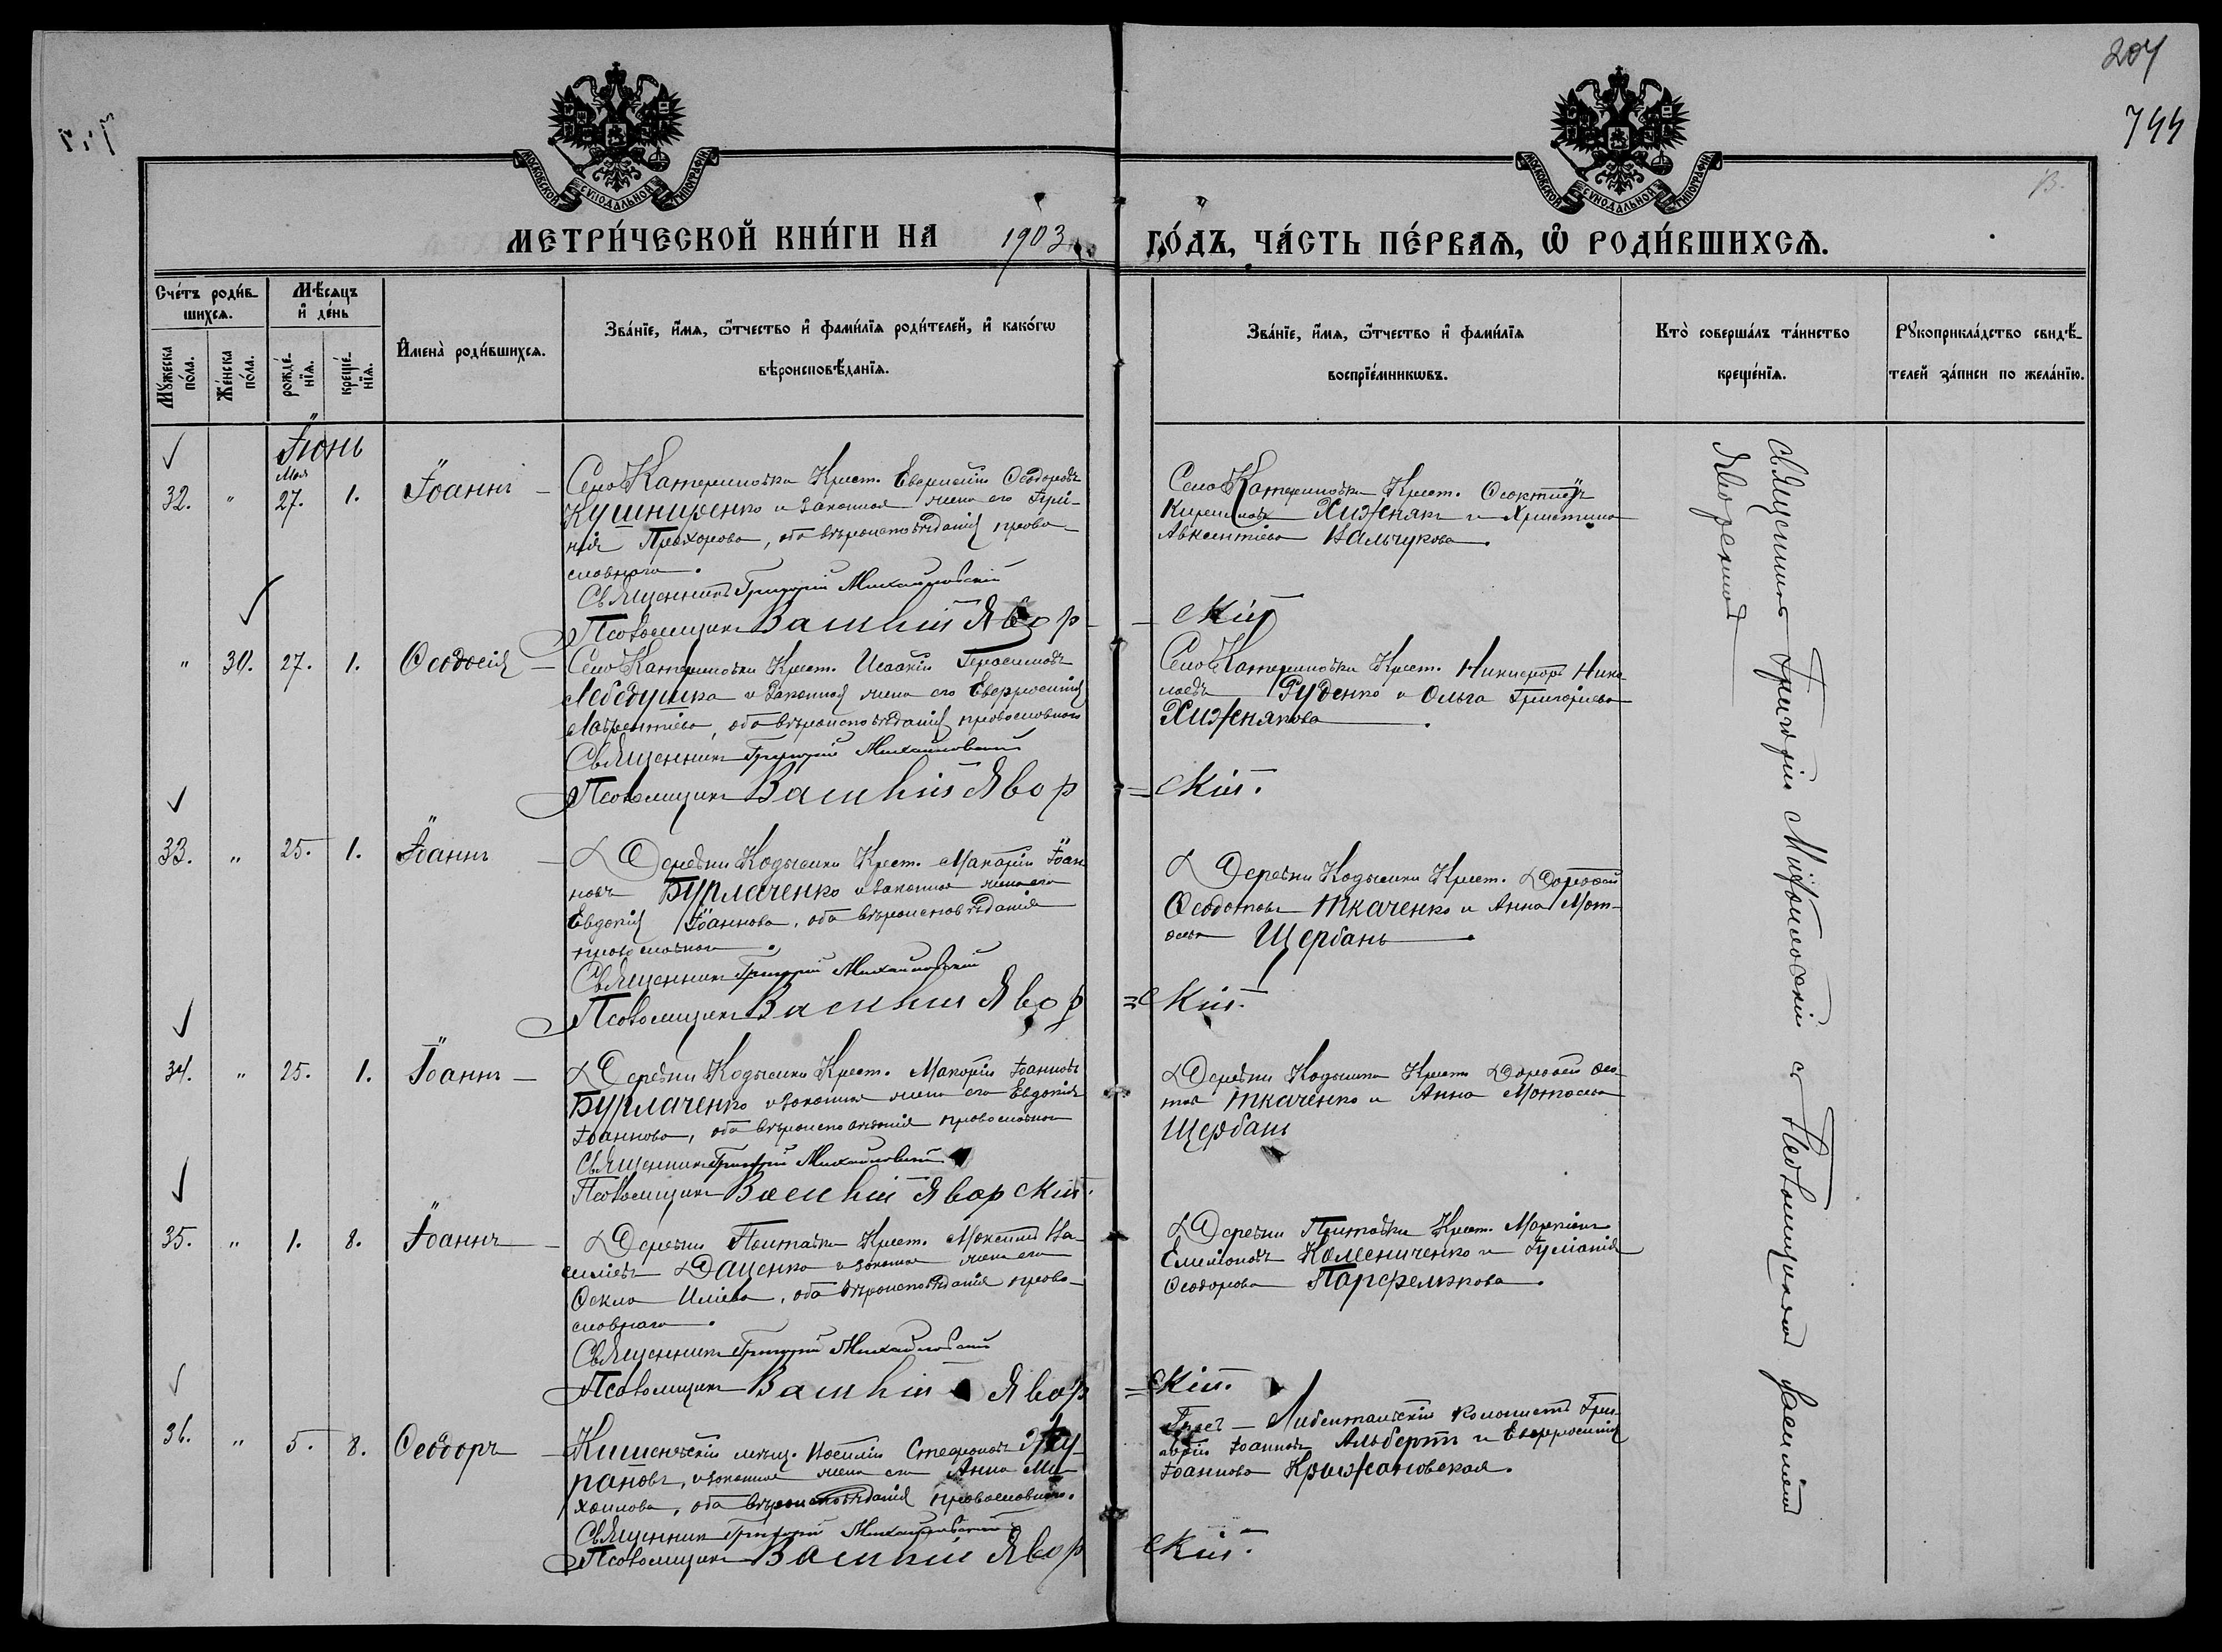 204
744
13.
МОСКОВСКОЙ СѴНОДАЛЬНОЙ ТИПОГРАФІИ
МОСКОВСКОЙ СѴНОДАЛЬНОЙ ТИПОГРАФІИ
МЕТРИ́ЧЕСКОЙ КНИ́ГИ НА 1903 ГО́ДЪ, ЧА́СТЬ ПЕ́РВАѦ, Ѽ РОДИ́ВШИХСѦ.
Сче́тъ роди́в-
шихсѧ.
Мꙋ́жеска по́ла.
Же́нска по́ла.
Мѣ́сѧцъ
и҆ де́нь
рожде́-
нїѧ.
креще́-
нїѧ.
И҆мена̀ роди́вшихсѧ.
Зва́нїе, и҆́мѧ, ѻ҆́тчество и҆ фами́лїѧ роди́телей, и҆ како́гѡ
вѣроисповѣ́данїѧ.
Зва́нїе, и҆́мѧ, ѻ҆́тчество и҆ фами́лїѧ
воспрїе́мникѡвъ.
Кто̀ соверша́лъ та́инство
креще́нїѧ.
Рꙋкоприкла́дство свидѣ́-
телей за́писи по жела́нїю.
Іюнь
Мая
32. " 27. 1. Іоаннъ
Село Катериновка Крест. Евгеній Ѳеодоровъ
Кушниренко и законная жена его Ири-
нія Прохорова, оба вѣроисповѣданія право-
славнаго.
Священникъ Григорій Михайловскій
Псаломщикъ Василій Яворскій
Село Катериновка Крест. Ѳеоктистъ
Хиженякъ и Христина
Авксентіева Кальчукова.
" 30. 27. 1. Ѳеодосія
Село Катериновки Крест. Исаакій Герасимовъ
Лебедушка и законная жена его Евфросинія
Лаврентіева, оба вѣроисповѣданія православнаго
Священникъ Григорій Михайловскій
Псаломщикъ Василій Яворскій.
Село Катериновки Крест. Никифоръ Нико-
лаевъ Руденко и Ольга Григоріева
Хиженякова.
33. " 25. 1. Іоаннъ
Деревни Кодымки Крест. Макарій Іоан-
новъ Бурлаченко и законная жена его
Евдокія Іоаннова, оба вѣроисповѣданія
православнаго.
Священникъ Григорій Михайловскій
Псаломщикъ Василій Яворскій.
Деревни Кодымки Крест. Дороѳей
Ѳеодотовъ Ткаченко и Анна Мат-
ѳеева Щербань.
34. " 25. 1. Іоаннъ
Деревни Кодымки Крест. Макарій Іоанновъ
Бурлаченко и законная жена его Евдокія
Іоаннова, оба вѣроисповѣданія православнаго
Священникъ Григорій Михайловскій
Псаломщикъ Василій Яворскій.
Деревни Кодымки Крест. Дороѳей Ѳео-
Ткаченко и Анна
Щербань
35. " 1. 8. Іоаннъ
Деревни Крест. Ва-
силіевъ Даценко и законная жена его
Ѳекла Иліева, оба вѣроисповѣданія право-
славнаго.
Священникъ Григорій Михайловскій
Псаломщикъ Василій Яворскій.
Деревни Крест. Маркіанъ
Емиліановъ Коменниченко и Іуліанія
Ѳеодорова
36. " 5. 8. Ѳеодоръ
Кишеневскій мѣщ. Василій Стефановъ
и законная жена его Анна Ми-
хаилова, оба вѣроисповѣданія православнаго.
Священникъ Григорій Михайловскій
Псаломщикъ Василій Яворскій.
Либентальскій колонистъ Гри-
горій Іоанновъ Альбертъ и Евфросинія
Іоаннова Крыжановская.
Священникъ Григорій Михайловскій съ Псаломщикомъ Василіемъ
Яворскимъ